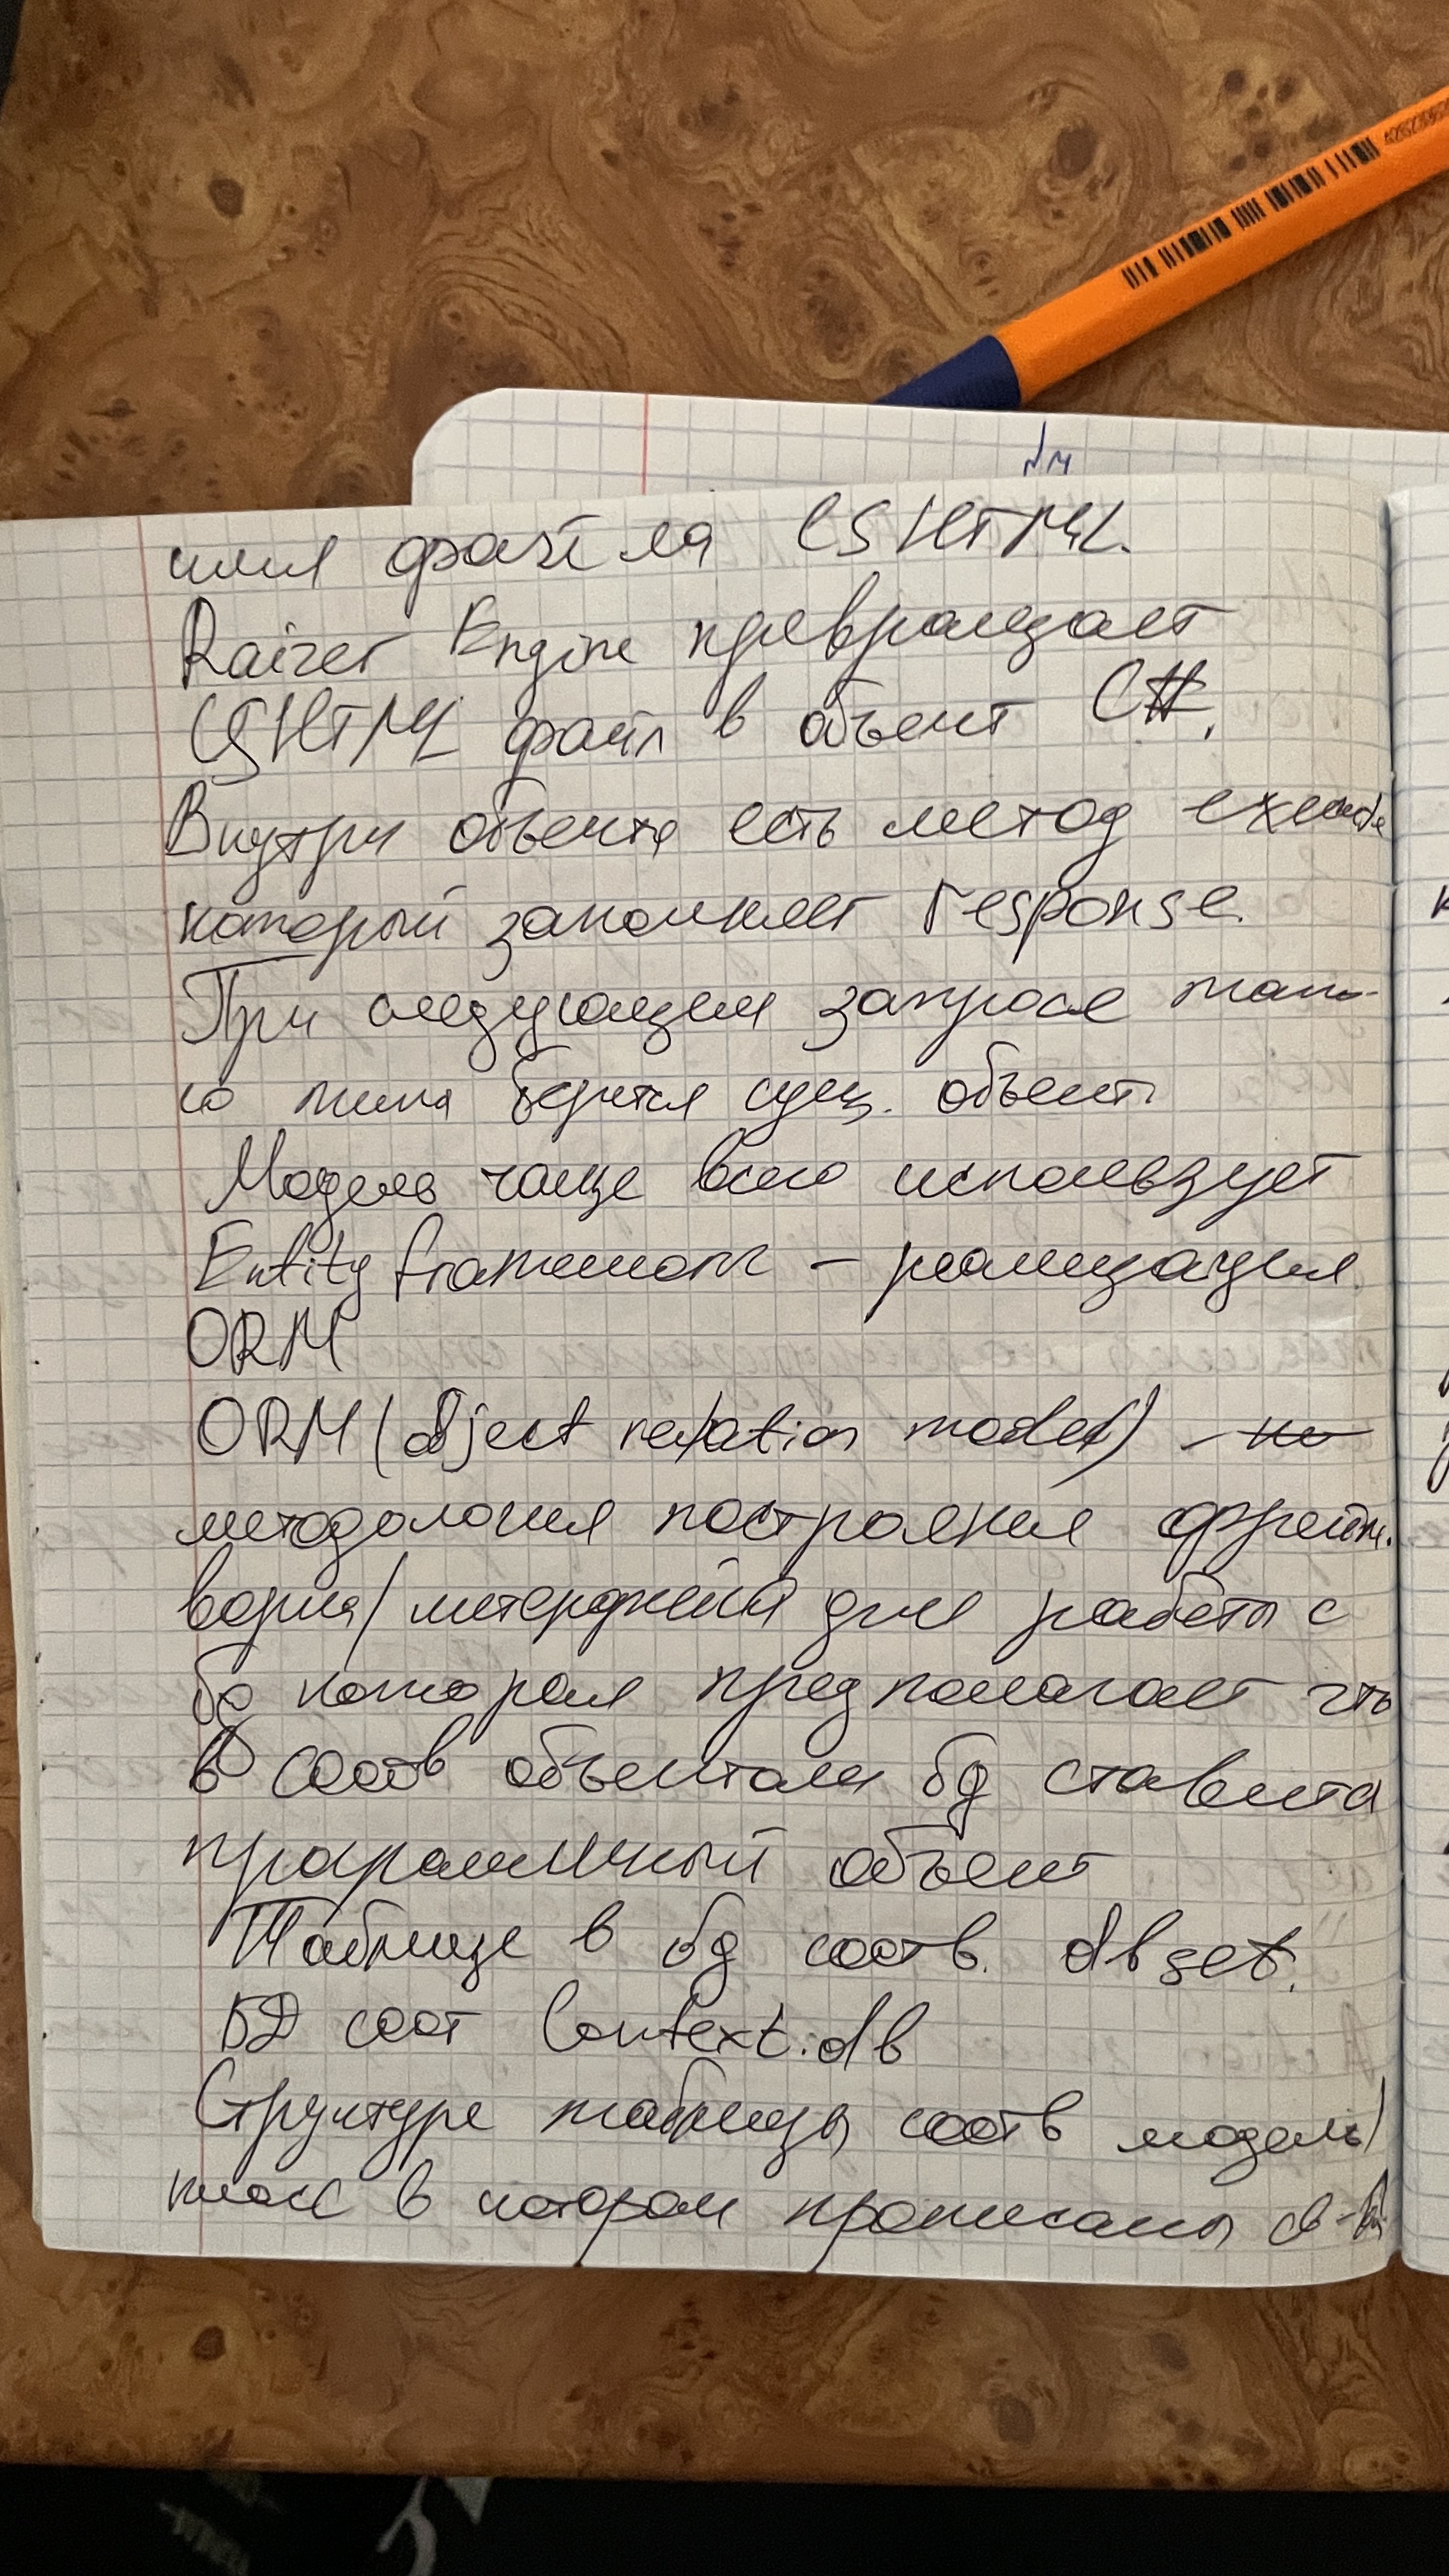 имя файла CSHTML.
Raizer Engine превращает
CSHTML файл в объект C#.
Внутри объекта есть метод execute
который заполняет response.
При следующем запросе тако-
го типа берется сущ. объект.
Модель чаще всего использует
Entity framework – реализация
ORM
ORM (object relation model) –
методология построения фрейм.
ворка/интерфейса для работы с
бд которая предполагает что
в соотв объектам бд ставится
програмMный объект
Таблице в бд соотв. dbset.
БД соот Context.db
Структуре таблицы соотв модель/
класс в котором прописаны св-ва